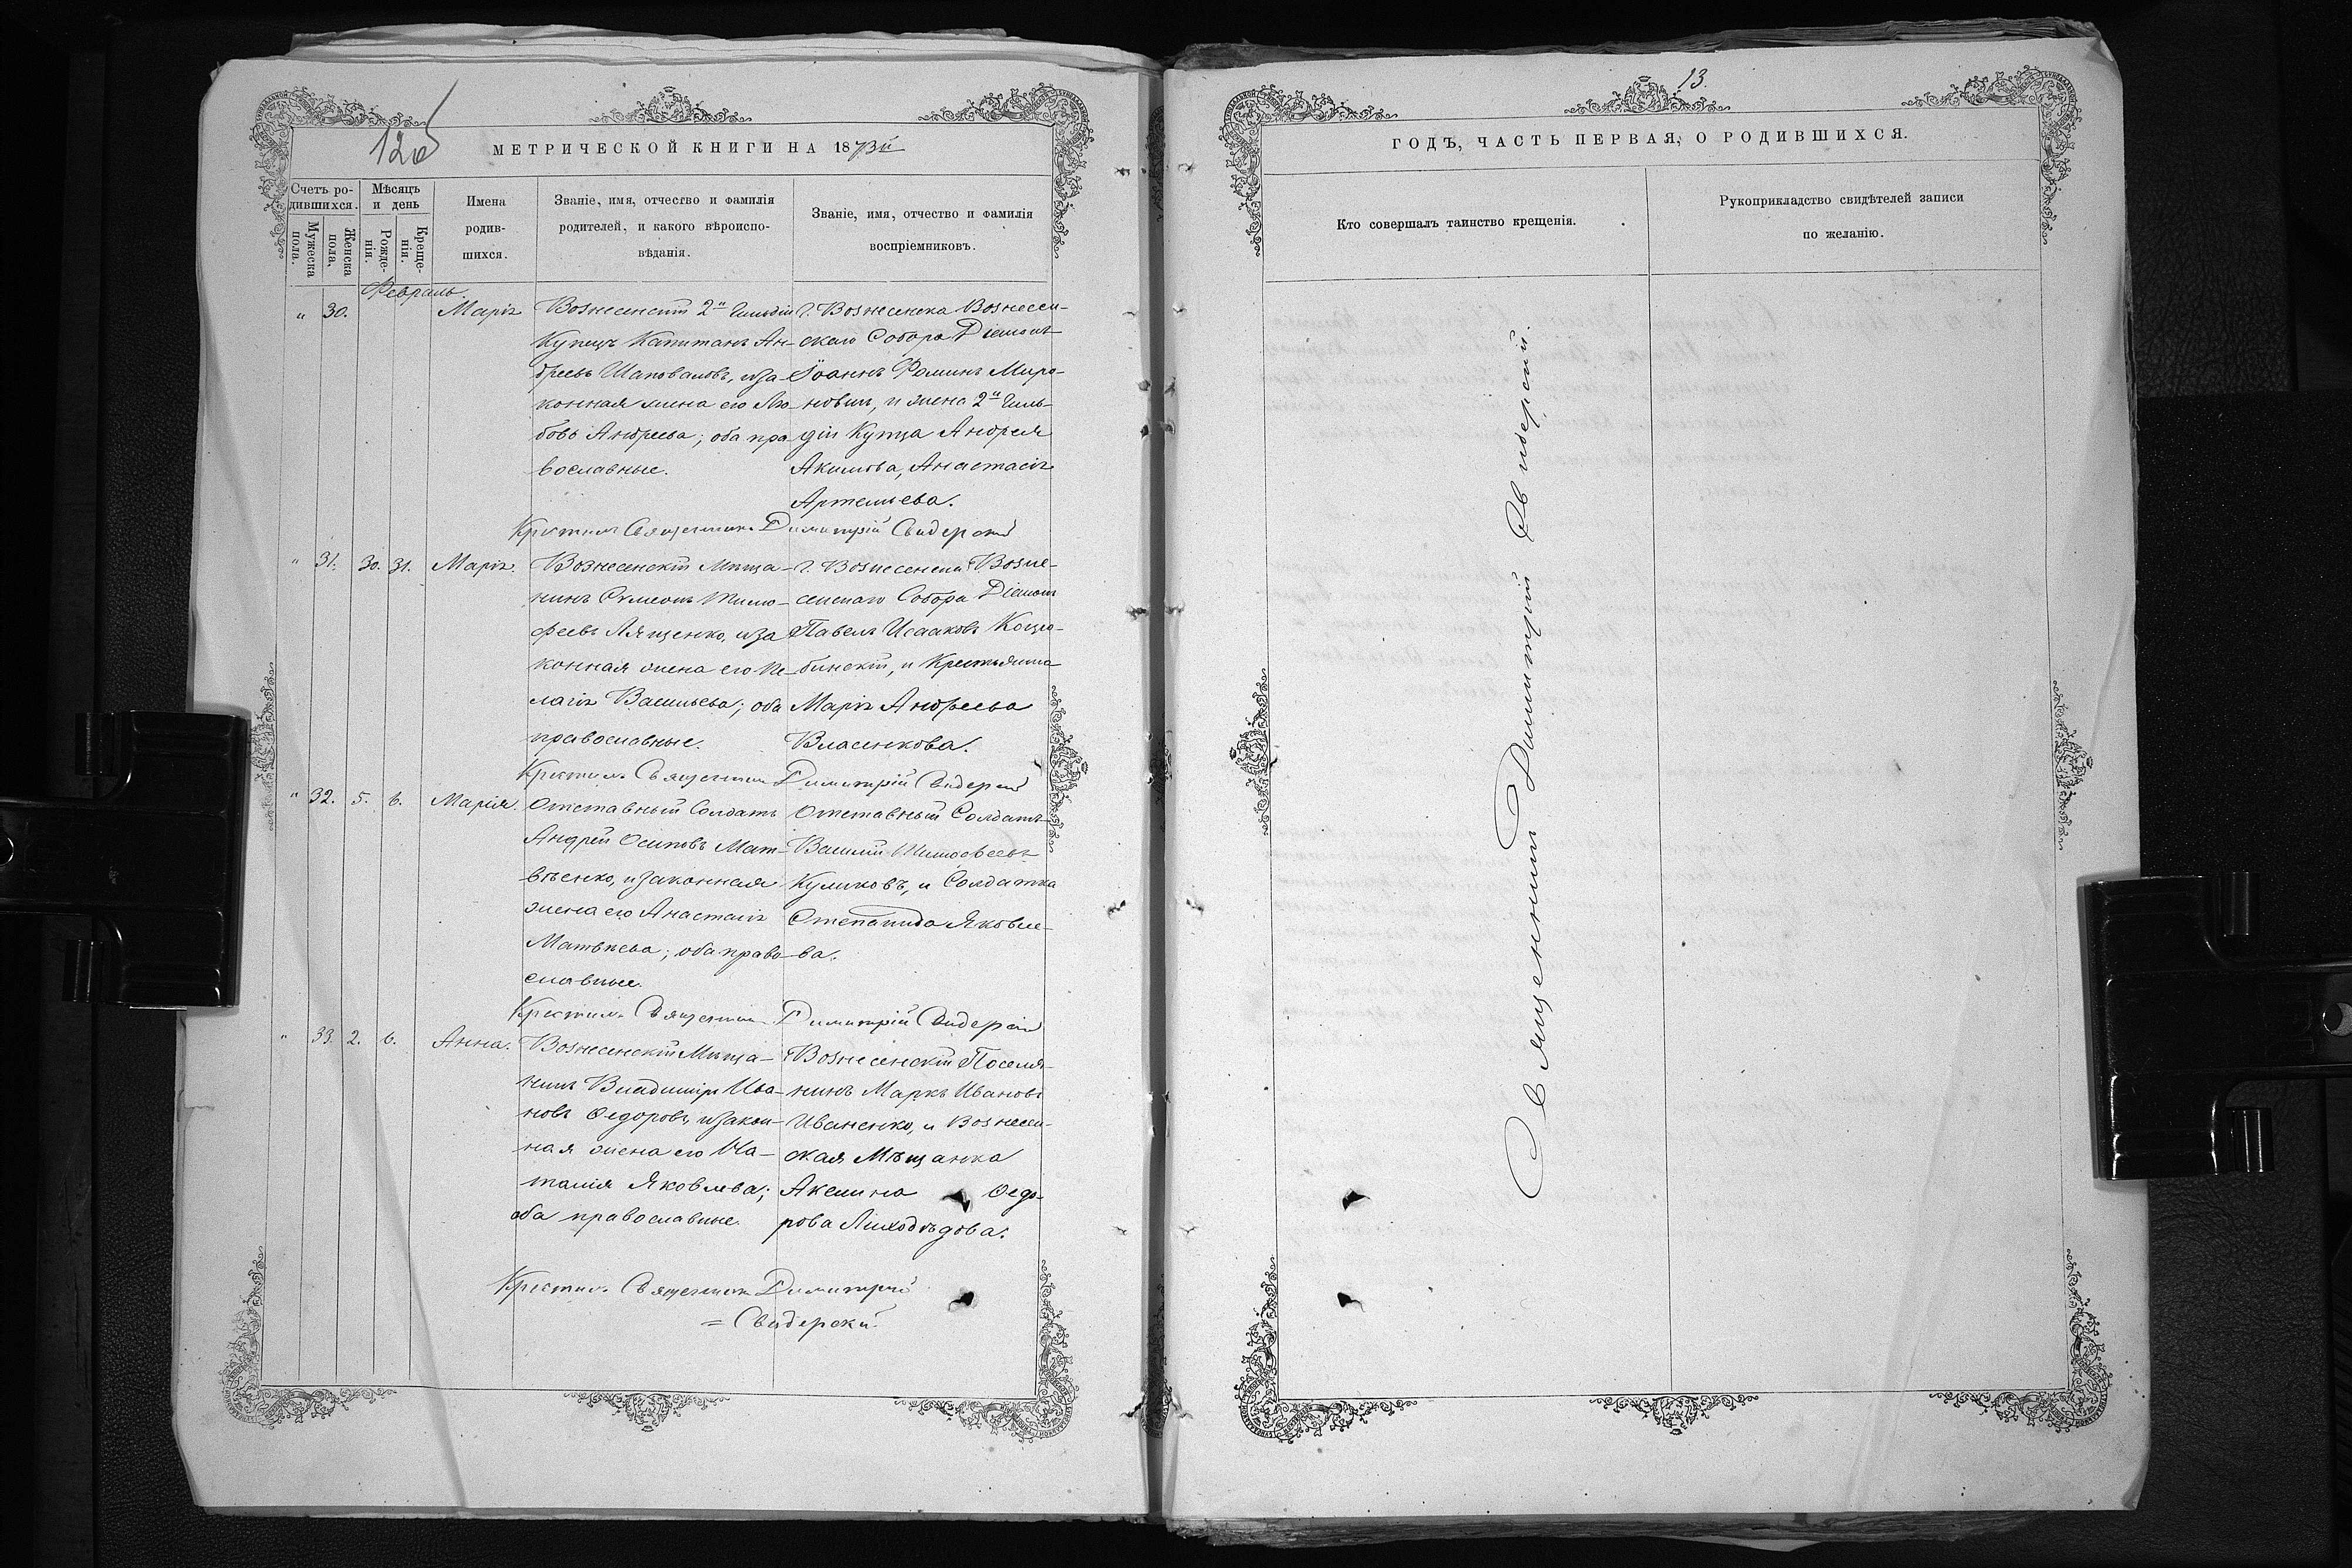 120
МЕТРИЧЕСКОЙ КНИГИ НА 1873й
Счетъ ро-
дившихся.
Мужеска
пола.
Женска
пола.
Мѣсяцъ
и день
Рожде-
нія.
Креще-
нія.
Имена
родив-
шихся.
Званіе, имя, отчество и фамилія
родителей, и какого вѣроиспо-
вѣданія.
Званіе, имя, отчество и фамилія
воспріемниковъ.
Февраль.
" 30. Марія
Вознесенскій 2й Гильдіи
Купецъ Капитанъ Ан-
дреевъ Шаповаловъ, и за-
конная жена его Лю-
бовь Андреева; оба пра
вославные.
г. Вознесенска Вознесен-
скаго Собора Діаконъ
Іоаннъ Фоминъ Миро-
новичъ, и жена 2й Гиль-
діи Купца Андрея
Акимова, Анастасія
Артемьева.
Крестилъ Священникъ Димитрій Свидерскій
" 31. 30. 31. Марія.
Вознесенскій Мѣща-
нинъ Сѵмеонъ Тимо-
феевъ Лященко, и за
конная жена его Пе-
лагія Васильева; оба
православные.
г. Вознесенска Возне-
сенскаго Собора Діаконъ
Павелъ Исааковъ Коцю-
бинскій, и Крестьянка
Марія Андреева
Власенкова.
Крестилъ Священникъ Димитрій Свидерскій
" 32. 5. 6. Марія.
Отставный Солдатъ
Андрей Осиповъ Мат-
вѣенко, и законная
жена его Анастасія
Матвѣева; оба право-
славные.
Отставный Солдатъ
Василій Тимофеевъ
Куликовъ, и Солдатка
Степанида Яковле-
ва.
Крестилъ Священникъ Димитрій Свидерскій
" 33. 2. 6. Анна.
Вознесенскій Мѣща-
нинъ Владиміръ Ива-
новъ Федоровъ, и закон-
ная жена его На-
талія Яковлева;
оба православные.
Вознесенскій Поселя-
нинъ Маркъ Ивановъ
Иваненко, и Вознесен-
ская Мѣщанка
Акелина Федо-
рова Лиходѣдова.
Крестилъ Священникъ Димитрій
= Свидерскій.
13.
ГОДЪ, ЧАСТЬ ПЕРВАЯ, О РОДИВШИХСЯ.
Кто совершалъ таинство крещенія.
Рукоприкладство свидѣтелей записи
по желанію.
Священникъ Димитрій Свидерскій.